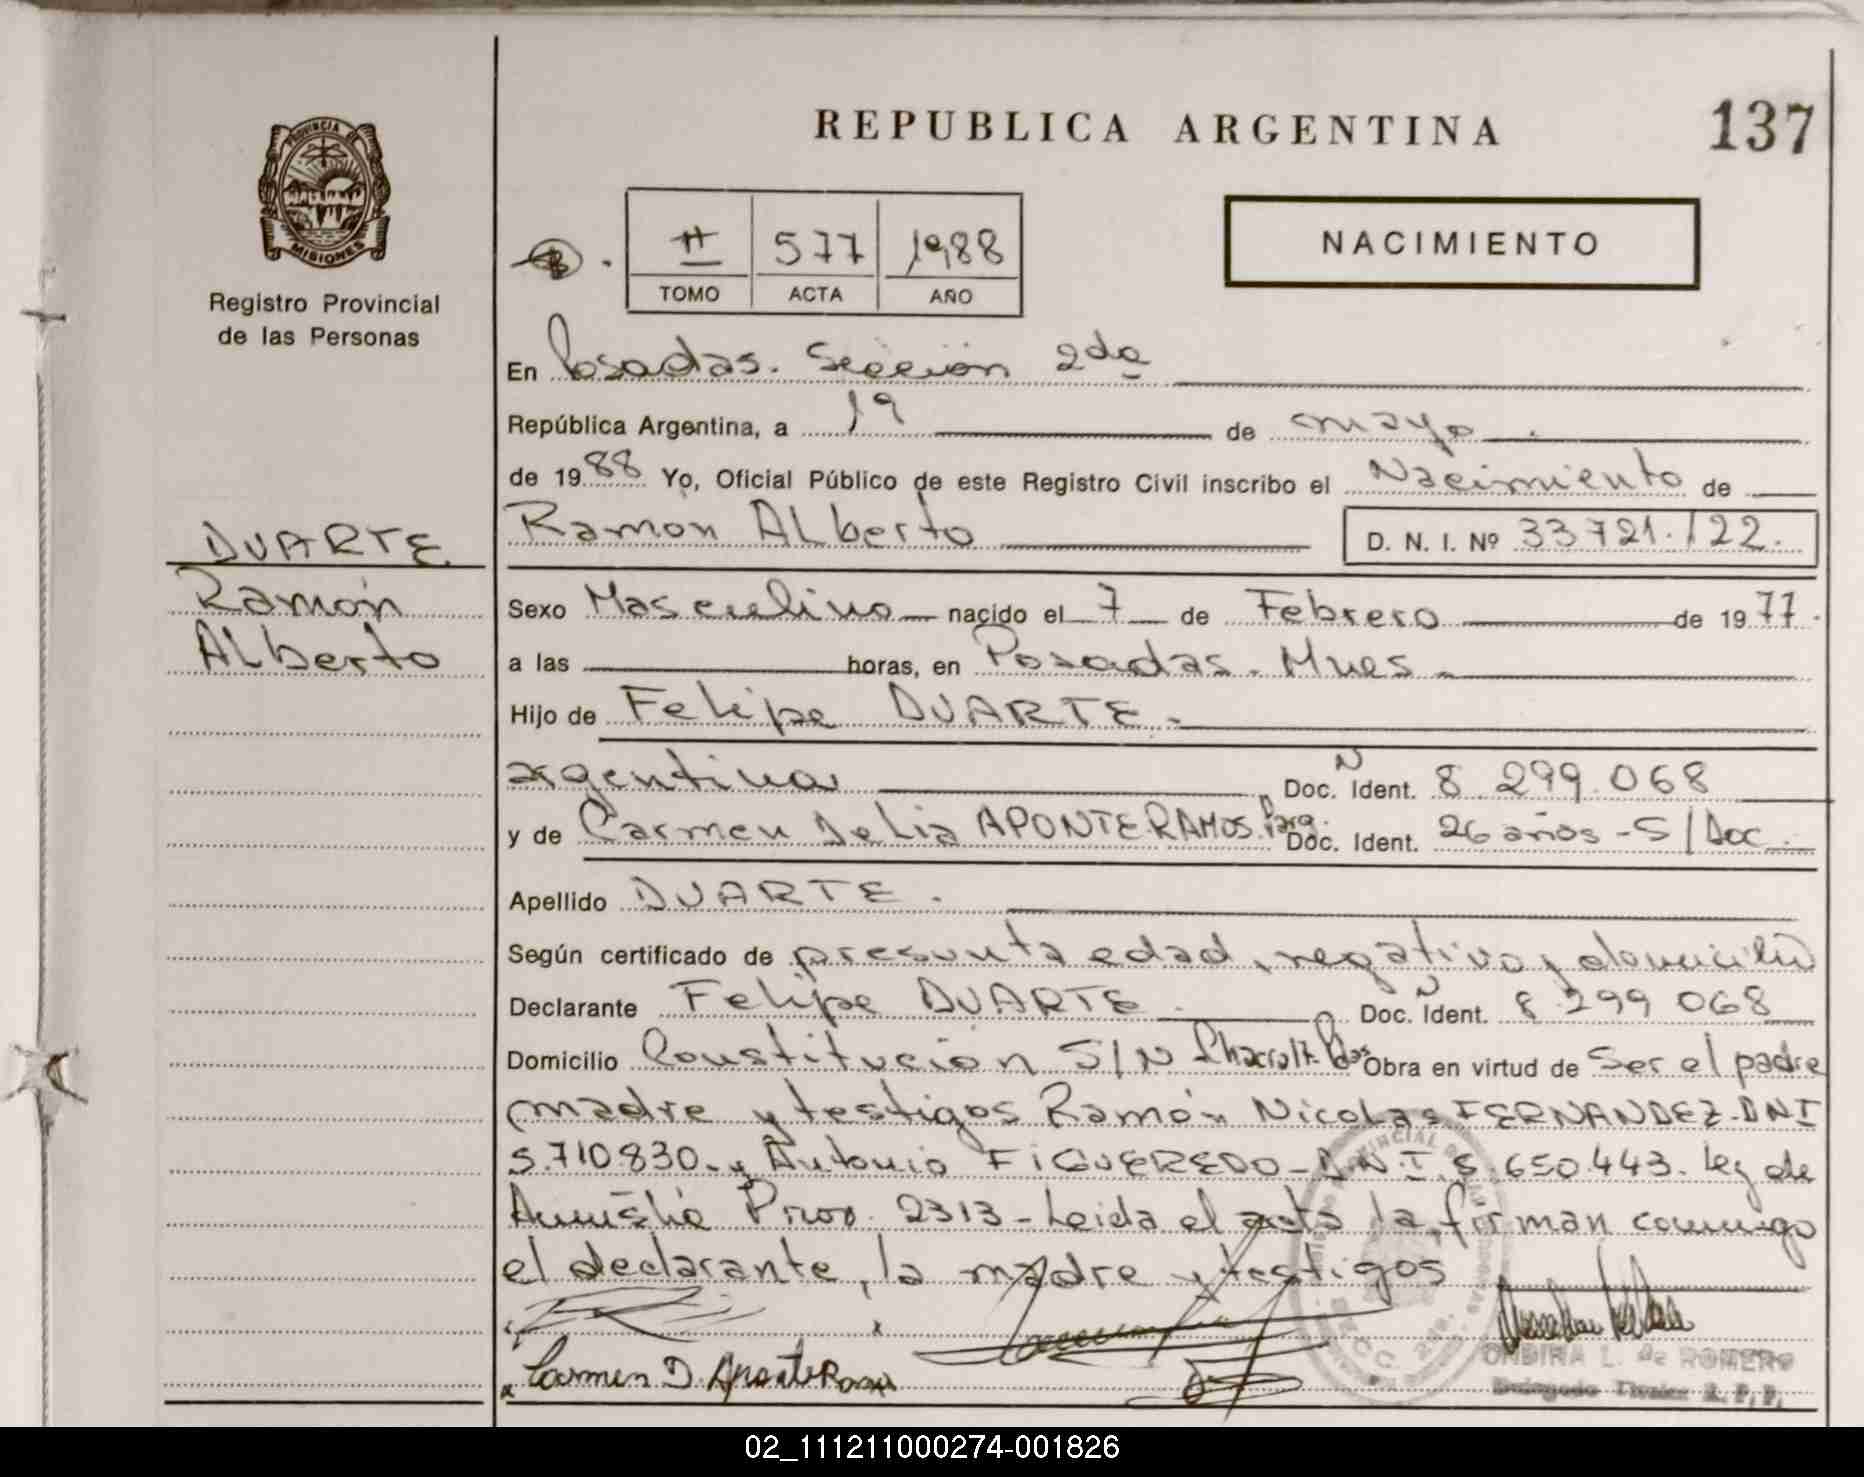 REPUBLICA ARGENTINA
137
PROVINCIA DE
MISIONES
Registro Provincial
de las Personas
II 577 1988
TOMO ACTA AÑO
NACIMIENTO
En Posadas. Sección 2da
República Argentina, a 19 de mayo
de 1988 Yo, Oficial Público de este Registro Civil inscribo el Nacimiento de
Ramon ALberto D. N. I. Nº 33721.122.
DUARTE
Ramón
ALberto
Sexo Masculino nacido el 7 de Febrero de 1977.
a las horas, en Posadas. Mnes
Hijo de FeLipe DUARTE.
argentina Doc. N Ident. 8 299.068
y de Carmen DeLia APONTE RAMOS. Parg. Doc. Ident. 26 años - S/Doc.
Apellido DUARTE.
Según certificado de presunta edad, negativo y domicilio
Declarante FeLipe DUARTE Doc. N Ident. 8 299 068
Domicilio Constitución S/N Obra en virtud de Ser el padre
madre y testigos Ramón NicoLas FERNANDEZ-DNI
5.710.830. y Antonio FIGUEREDO-D.N.I. 8.650.443. Ley de
Amnistia Prov. 2313-Leida el acta la firman conmigo
el declarante, la madre y testigos
Carmen D. Aponte Ramos
ONDINA L. de ROMERO
Delegada Titular R. P. P.
02_111211000274-001826